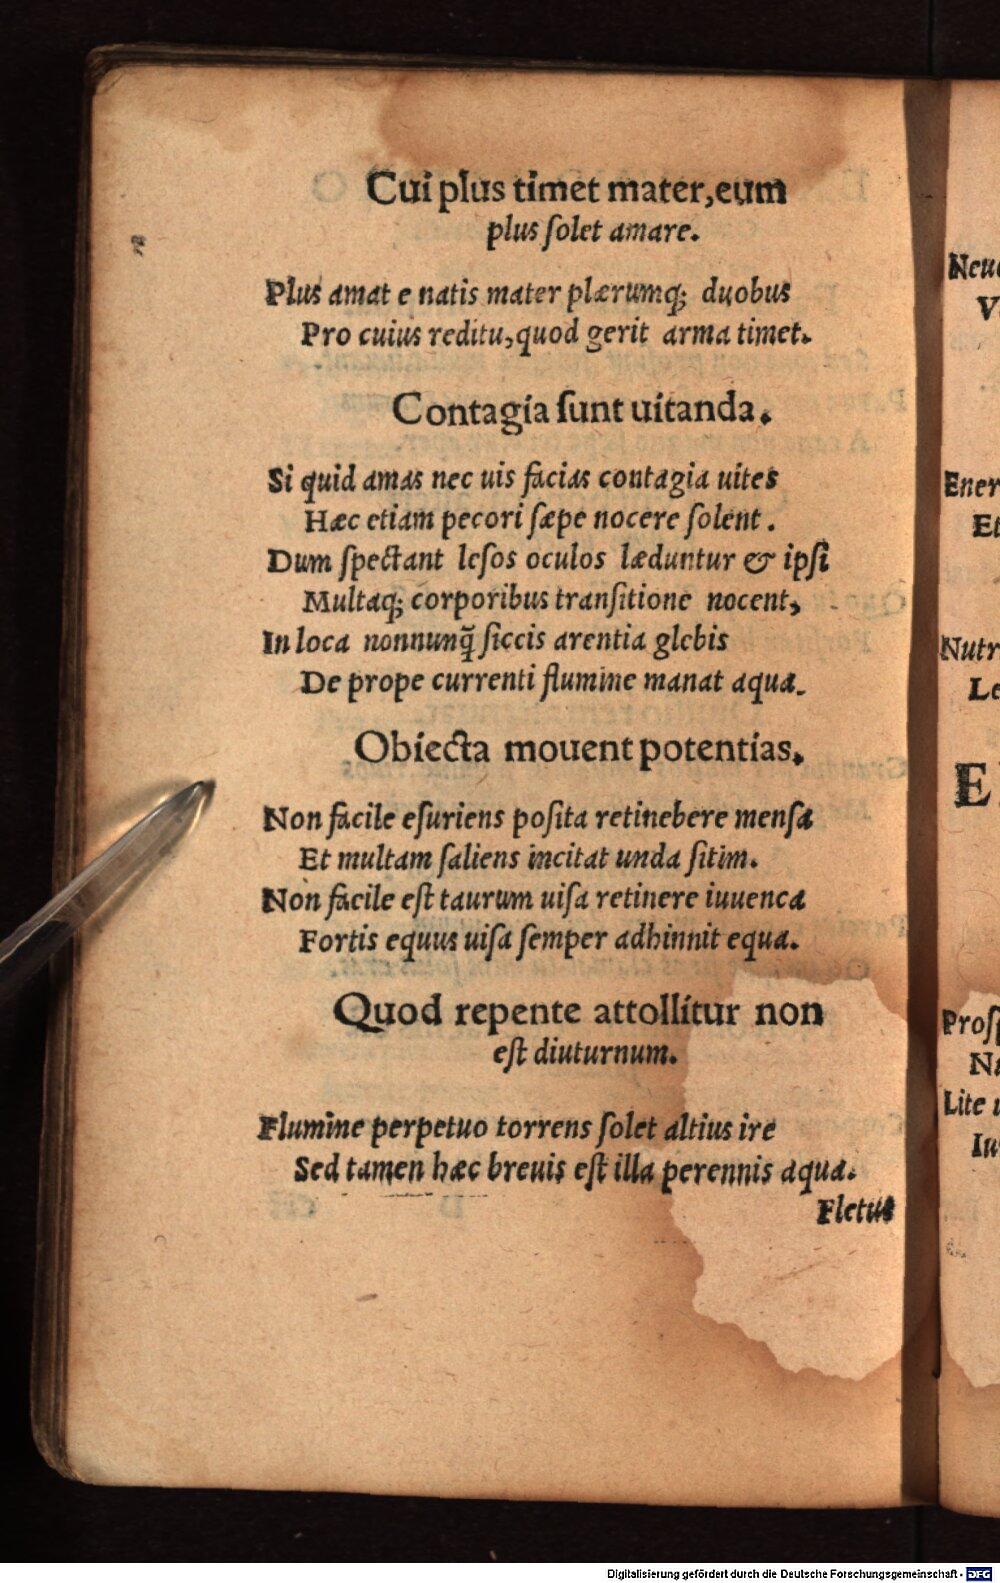 Cui plus timet mater, eum
plus ſolet amare.
Plus amat e natis mater plærumq; duobus
Pro cuius reditu, quod gerit arma timet.
Contagia ſunt uitanda.
Si quid amas nec uis facias contagia uites
Hæc etiam pecori ſæpe nocere ſolent.
Dum ſpectant leſos oculos læduntur & ipſi
Multaq; corporibus tranſitione nocent,
In loca nonnunq̃ ſiccis arentia glebis
De prope currenti flumine manat aqua.
Obiecta mouent potentias.
Non facile eſuriens poſita retinebere menſa
Et multam ſaliens incitat unda ſitim.
Non facile eſt taurum uiſa retinere iuuenca
Fortis equus uiſa ſemper adhinnit equa.
Quod repente attollitur non
eſt diuturnum.
Flumine perpetuo torrens ſolet altius ire
Sed tamen hæc breuis eſt illa perennis aqua.
Fletus
Neu
V
Ener
Et
Nutr
Le
E
Proſ
Na
Lite
Iu
Digitalisierung gefördert durch die Deutsche Forschungsgemeinschaft - DFG